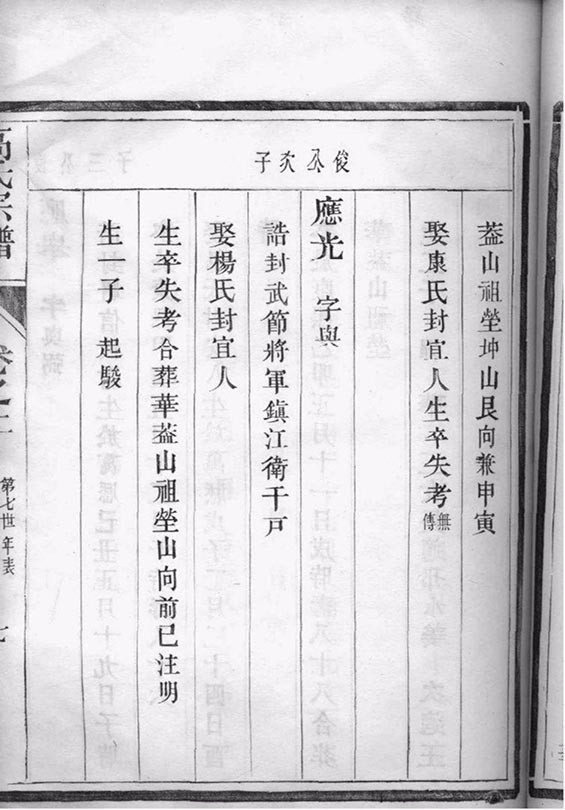 俊公次子
葢山祖塋坤山艮向兼申寅
娶康氏封宜人生卒失考無傳
應光 字與
誥封武節將軍鎭江衛千戸
娶楊氏封宜人
生卒失考合葬華葢山祖塋山向前已注明
生子 起駿
高氏宗譜
卷之二
第七世年表
七